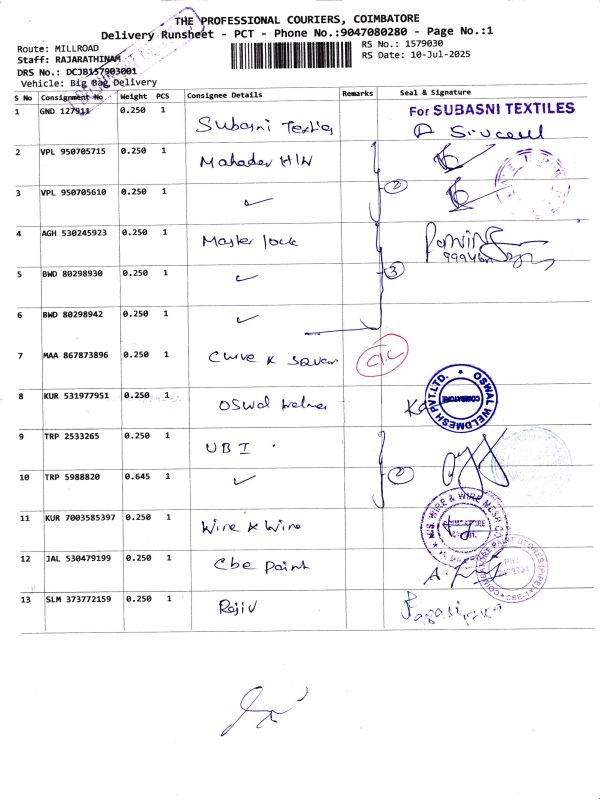 THE PROFESSIONAL COURIERS, COIMBATORE
Delivery Runsheet - PCT - Phone No.:9047080280 - Page No.:1
Route: MILLROAD
RS No.: 1579030
Staff: RAJARATHINAM
RS Date: 10-Jul-2025
DRS No.: DCJB157903001
Vehicle: Big Bag Delivery
S No Consignment No Weight PCS Consignee Details Remarks Seal & Signature
1 GND 127911 0.250 1 Subasni Textiles For SUBASNI TEXTILES
2 VPL 950705715 0.250 1 Mahadev H/W
3 VPL 950705610 0.250 1 ✓ 2
4 AGH 530245923 0.250 1 Master lock
5 BWD 80298930 0.250 1 ✓ 3
6 BWD 80298942 0.250 1 ✓
7 MAA 867873896 0.250 1 Curve & Square
8 KUR 531977951 0.250 1 Oswal OSWAL WELDMESH PVT.LTD. COIMBATORE
9 TRP 2533265 0.250 1 UBI
10 TRP 5988820 0.645 1 ✓ 2
11 KUR 7003585397 0.250 1 Wire & Wire M.S. WIRE & WIRE MESH CO
12 JAL 530479199 0.250 1 Cbe Paint COIMBATORE PAINT STORES (PIPE) CBE-1
13 SLM 373772159 0.250 1 Rajiv